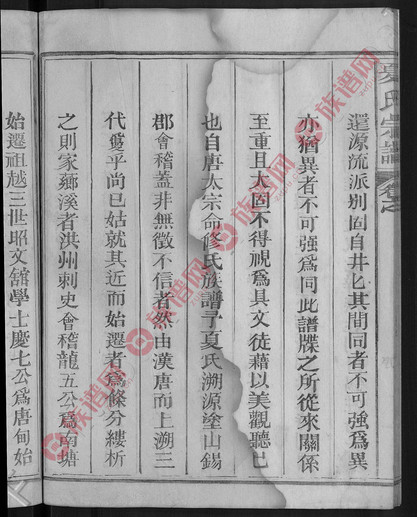 夏氏宗譜 卷之
還源流派别固自井匕其間同者不可強爲異
亦猶異者不可強爲同此譜牒之所從來關係
至重且大固不得視爲具文徒藉以美觀聽已
也自唐太宗命修氏族譜予夏氏溯源塗山錫
郡會稽蓋非無徵不信者然由漢唐而上溯三
代敻乎尚已姑就其近而始遷者爲條分縷析
之則家薌溪者淇州刺史會稽龍五公爲南塘
始遷祖越三世昭文舘學士慶七公爲唐甸始
族谱网